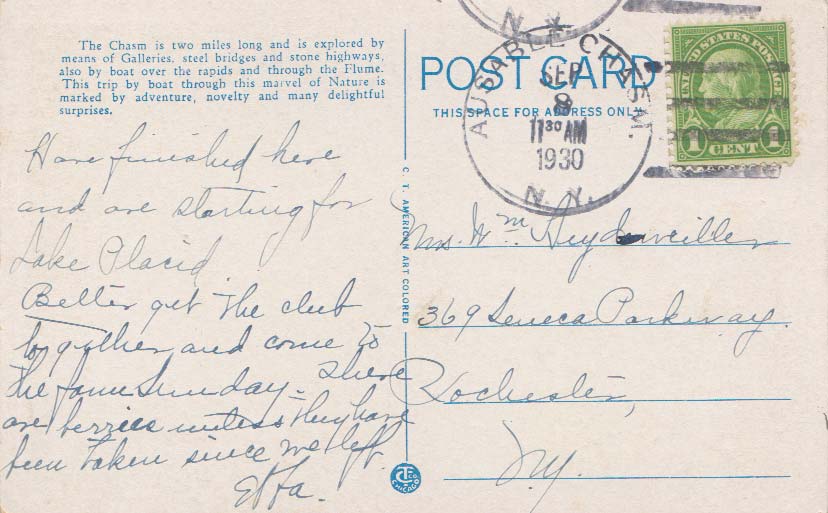 The Chasm is two miles long and is explored by
means of Galleries, steel bridges and stone highways,
also by boat over the rapids and through the Flume.
This trip by boat through this marvel of Nature is
marked by adventure, novelty and many delightful
surprises.
Have finished here
and are starting for
Lake Placid.
Better get the club
together and come to
the farm Sunday. There
are berries unless they have
been taken since we left.
Etta.
C. T. AMERICAN ART COLORED
CTC
CHICAGO
POST CARD
THIS SPACE FOR ADDRESS ONLY
N. Y.
AUSABLE CHASM.
SEP
8
11 30 AM
1930
N. Y.
UNITED STATES POSTAGE
1 CENT 1
Mrs. Wm. Heydweiller
369 Seneca Parkway.
Rochester,
N.Y.